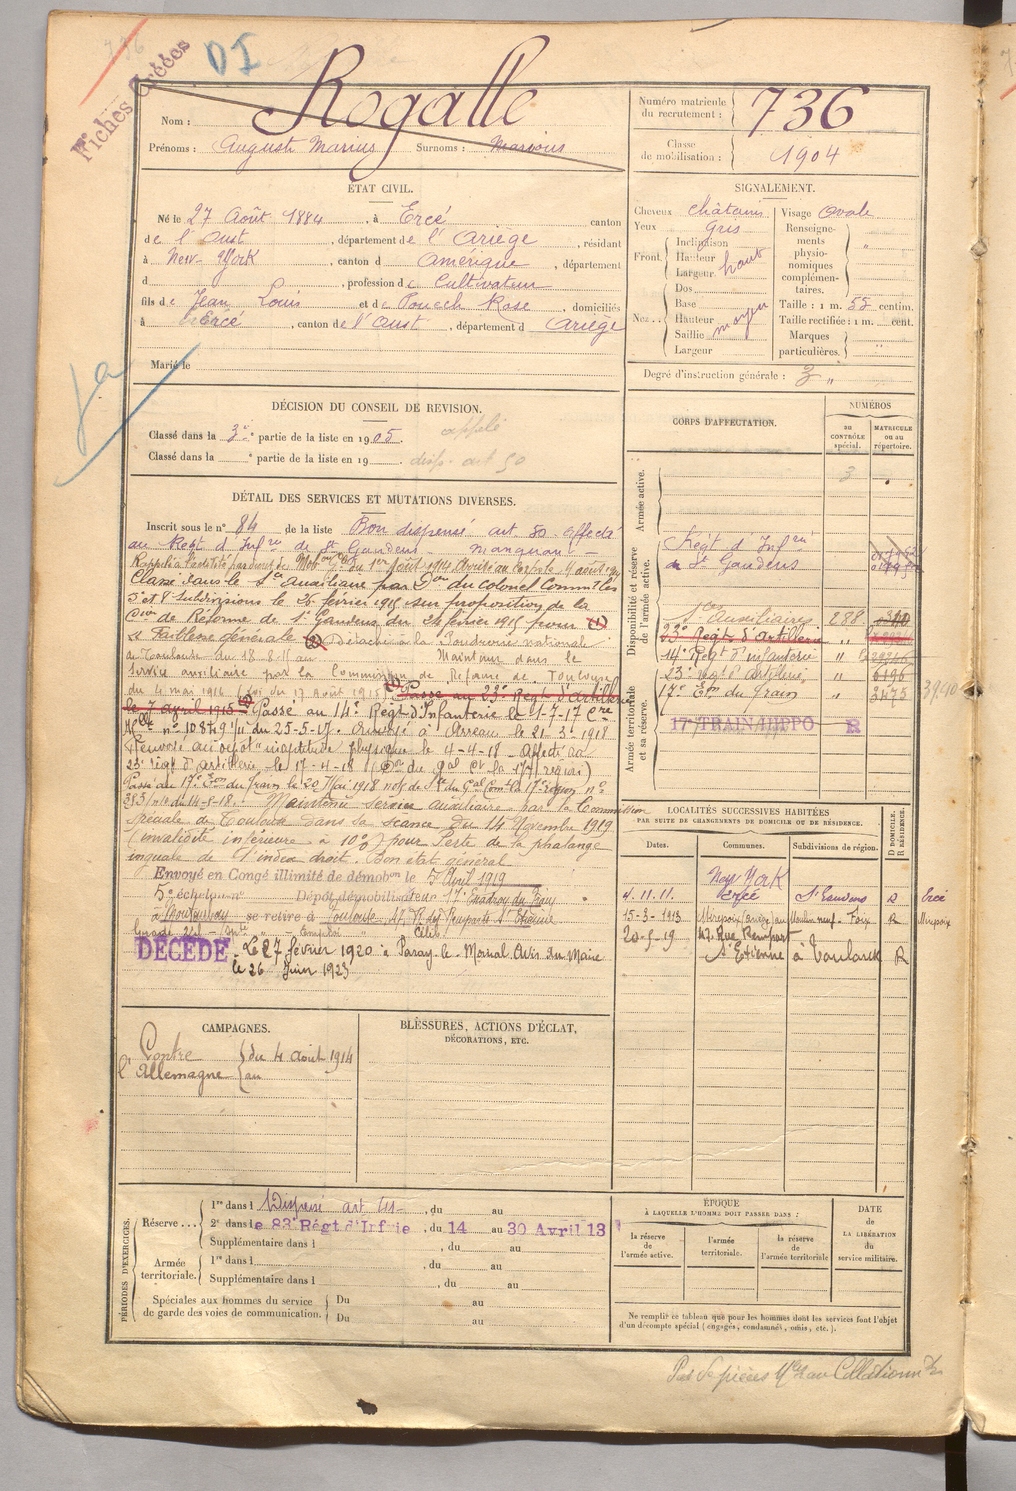 Fiches Créées
DI
Nom : Rogalle
Prénoms : Auguste Marius Surnoms :
Numéro matricule du recrutement : 736
Classe de mobilisation : 1904
ÉTAT CIVIL.
Né le 27 Août 1884, à Ercé canton
de l'Oust, département de l'Ariège, résidant
à New-York, canton d Amérique, département
d , profession de Cultivateur
fils de Jean Louis et de Pouech Rose, domiciliés
à Ercé, canton de l'Oust, département d Ariège
Marié le
SIGNALEMENT.
Cheveux châtains Visage Ovale
Yeux gris
Front. Inclinaison
Hauteur
Largeur haut
Nez.. Dos
Base
Hauteur moyen
Saillie
Largeur
Renseignements physionomiques complémentaires. "
Taille : 1 m. 55 centim.
Taille rectifiée : 1 m. cent.
Marques particulières. "
Degré d'instruction générale : 3 "
DÉCISION DU CONSEIL DE REVISION.
Classé dans la 3e partie de la liste en 1905. appelé
Classé dans la e partie de la liste en 19 disp. art 50
DÉTAIL DES SERVICES ET MUTATIONS DIVERSES.
Inscrit sous le n° 84 de la liste Bon dispensé art 50 affecté
au Régt d'Infre de St Gaudens - manquant -
Rappelé à l'activité par décret de Mobon Gle du 1er Août 1914 Arrivé au corps le 4 août 1914
Classé dans le Sce auxiliaire par Don du Colonel Commt les
5 et 8 Subdivisions le 26 février 1915 sur proposition de la
Con de Réforme de St Gaudens du 24 février 1915 pour (1)
" faiblesse générale " (2) Détaché à la Poudrerie nationale
de Toulouse du 18-8-15 au Maintenu dans le
service auxiliaire par la Commission de Réforme de Toulouse
du 4 mai 1916 (loi du 17 Août 1915) Passé au 23e Régt d'Artillerie
le 7 avril 1915 Passé au 14e Régt d'Infanterie le 1-7-17 Cre
Melle n° 10849 1/11 du 25-5-17. Arreau le 21-3-1918
Renvoyé au dépôt inaptitude physique le 4-4-18 - Affecté au
23e régt d'artillerie le 17-4-18 (Don du Gal Ct la 17e région)
Passé au 17e Eon du Train le 20 Mai 1918 note de Sce du Gal Comt la 17e région n°
du 14-5-18. Maintenu service auxiliaire par la Commission
spéciale de Toulouse dans sa séance du 14 Novembre 1919
(invalidité inférieure à 10%) pour Perte de la phalange
unguéale de l'index droit. Bon état général
Envoyé en Congé illimité de démobon le 5 Avril 1919
5e échelon n° Dépôt démobilisateur 17e Escadron du Train
à Montauban se retire à Toulouse St Etienne
DÉCÉDÉ. Le 27 février 1920 à Paray-le-Monial Avis du Maire
le 26 Juin 1923
CORPS D'AFFECTATION.
NUMÉROS
au contrôle spécial.
MATRICULE ou au répertoire.
Armée active.
3
Disponibilité et réserve de l'armée active.
Régt d'Infrie
de St Gaudens
Sces Auxiliaires 288
23e Régt d'Artillerie "
14e Régt d'infanterie "
23e régt d'artillerie, " 6196
17e Eon du Train " 2475 3940
Armée territoriale et sa réserve.
17e TRAIN HIPPO R
LOCALITÉS SUCCESSIVES HABITÉES
PAR SUITE DE CHANGEMENTS DE DOMICILE OU DE RÉSIDENCE.
Dates. Communes. Subdivisions de région. D DOMICILE. R RÉSIDENCE.
New York
4.11.11. Ercé St Gaudens R Ercé
15-3-1913 Mirepoix (Ariège) au Moulin neuf - Foix R Mirepoix
20-5-19 47, Rue Rempart
St Etienne à Toulouse R
CAMPAGNES.
Contre l'Allemagne du 4 août 1914
au
BLESSURES, ACTIONS D'ÉCLAT,
DÉCORATIONS, ETC.
PÉRIODES D'EXERCICES.
Réserve... 1re dans l Dispensé art , du au
2e dans le 83e Régt d'Infrie , du 14 au 30 Avril 13
Supplémentaire dans l , du au
Armée territoriale. 1re dans l , du au
Supplémentaire dans l , du au
Spéciales aux hommes du service de garde des voies de communication. Du au
Du au
ÉPOQUE
À LAQUELLE L'HOMME DOIT PASSER DANS :
la réserve de l'armée active.
l'armée territoriale.
la réserve de l'armée territoriale
DATE de LA LIBÉRATION du service militaire.
Ne remplir ce tableau que pour les hommes dont les services font l'objet
d'un décompte spécial (engagés, condamnés, omis, etc.).
Pas de pièces